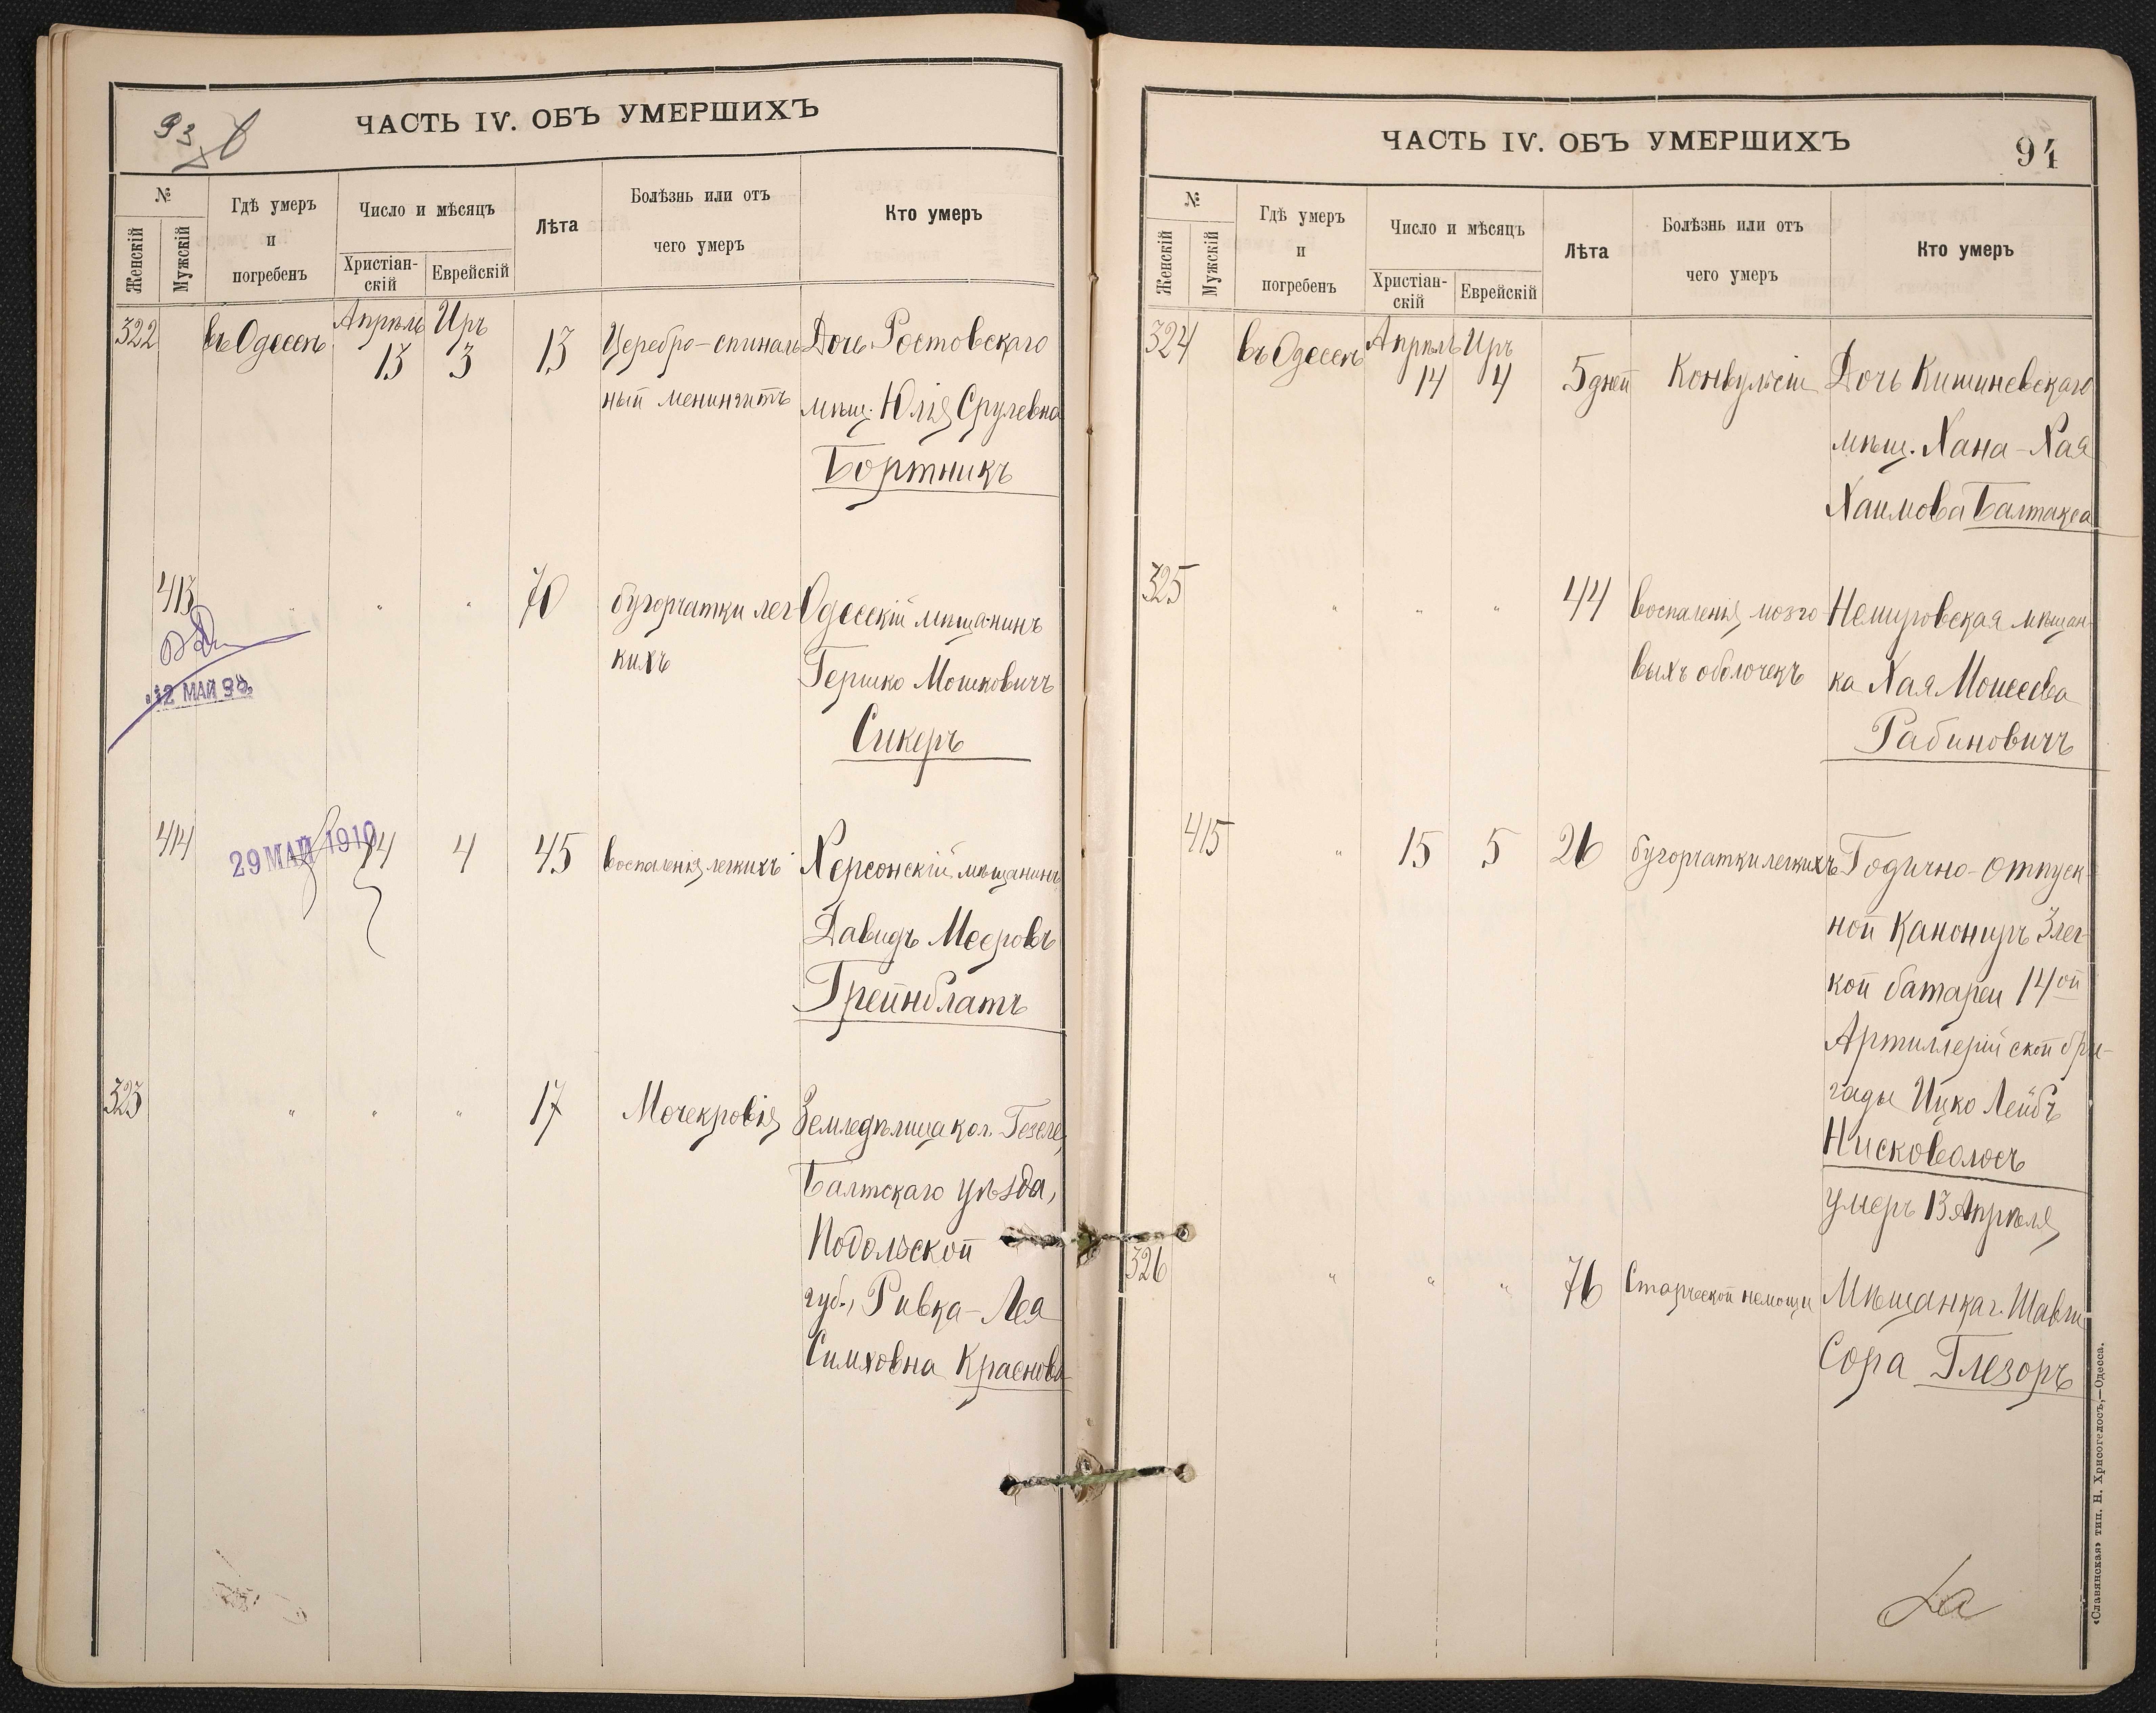 93
ЧАСТЬ IV. ОБЪ УМЕРШИХЪ
№
Женскій
Мужскій
Гдѣ умеръ
и
погребенъ
Число и мѣсяцъ
Христіан-
скій
Еврейскій
Лѣта
Болѣзнь или отъ
чего умеръ
Кто умеръ
322
въ Одессѣ
Апрѣль
13
Иръ
3
13
Церебро-спиналь
ный менингитъ
Дочь Ростовскаго
мѣщ. Юлія Срулевна
Бортникъ
413
12 МАЙ
"
"
"
70
бугорчатки лег
кихъ
Одесскій мѣщанинъ
Гершко Мошковичъ
Сикеръ
414
29 МАЙ 1910
14
4
45
воспаленія легкихъ
Херсонскій мѣщанинъ
Давидъ Мееровъ
Грейнблатъ
323
"
"
"
17
Мочекровія
Земледѣлица кол. Гезеле,
Балтскаго уѣзда,
Подольской
губ., Ривка-Лея
Симховна Краснова
ЧАСТЬ IV. ОБЪ УМЕРШИХЪ
94
№
Женскій
Мужскій
Гдѣ умеръ
и
погребенъ
Число и мѣсяцъ
Христіан-
скій
Еврейскій
Лѣта
Болѣзнь или отъ
чего умеръ
Кто умеръ
324
въ Одессѣ
Апрѣль
14
Иръ
4
5 дней
Конвульсіи
Дочь Кишиневскаго
мѣщ. Хана-Хая
Хаимова Балтакса
325
"
"
"
44
воспаленія мозго
выхъ оболочекъ
Немировская мѣщан-
ка Хая Моисеева
Рабиновичъ
415
"
15
5
26
бугорчатки легкихъ
Годично-отпуск-
ной Канониръ 3 лег-
кой батареи 14ой
Артиллерійской бри-
гады Ицко Лейбъ
Нисковолосъ
умеръ 13 Апрѣля
326
"
"
"
76
Старческой немощи
Мѣщанка г. Шавли
Сора Глезоръ
«Славянская» тип. Н. Хрисогелосъ,—Одесса.